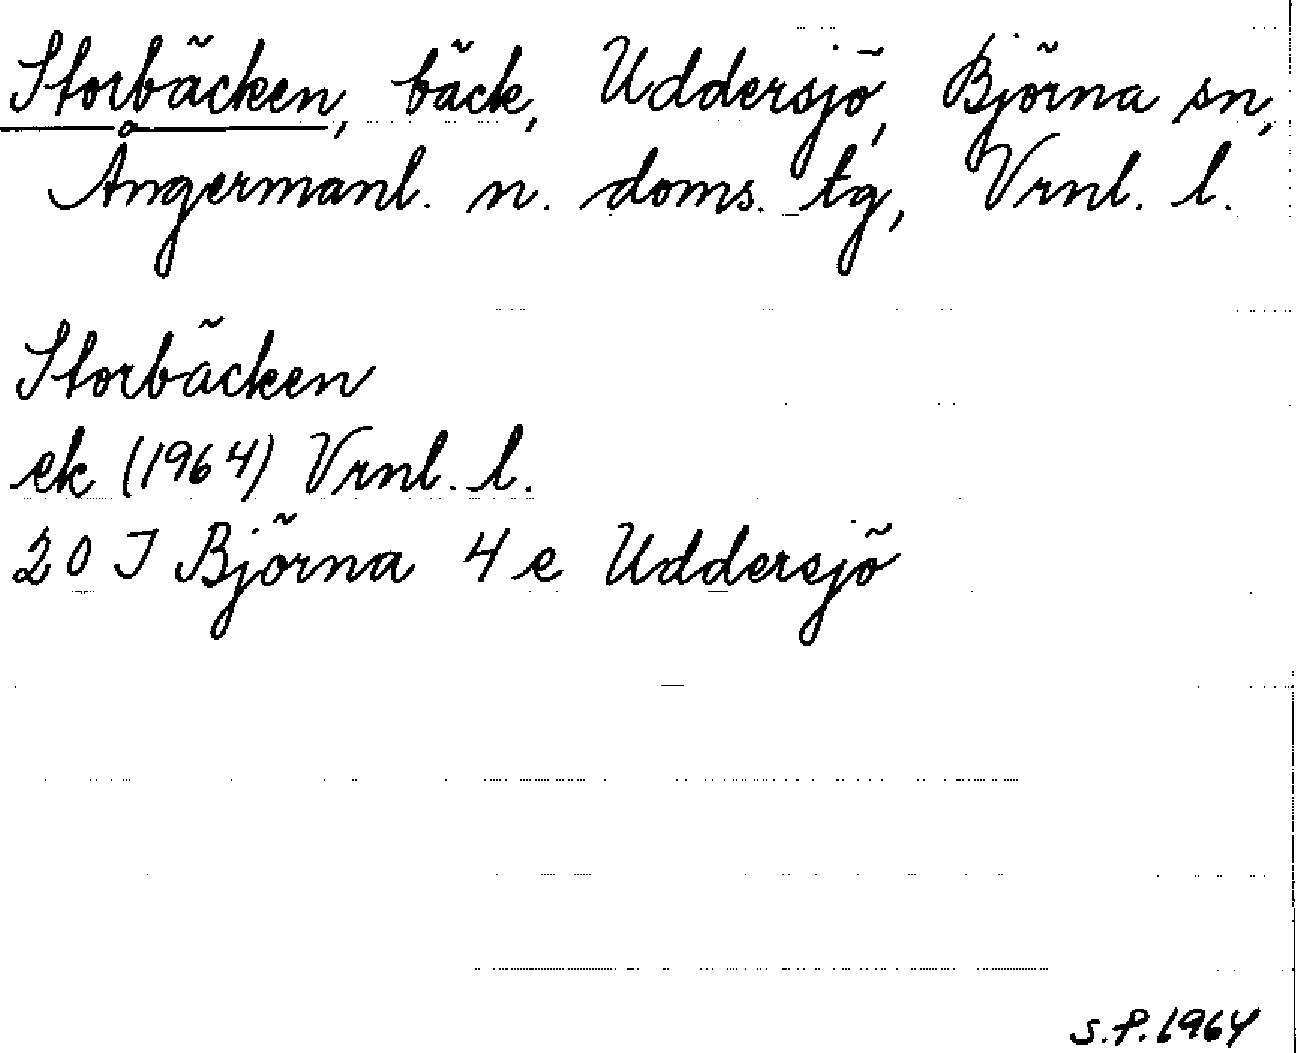 Storbäcken, bäck, Uddersjö, Björna sn,
Ångermanl. n. doms. tg, Vrnl. l.
Storbäcken
ek (1964) Vrnl. l.
20 I Björna 4 e Uddersjö
S.P. 1964